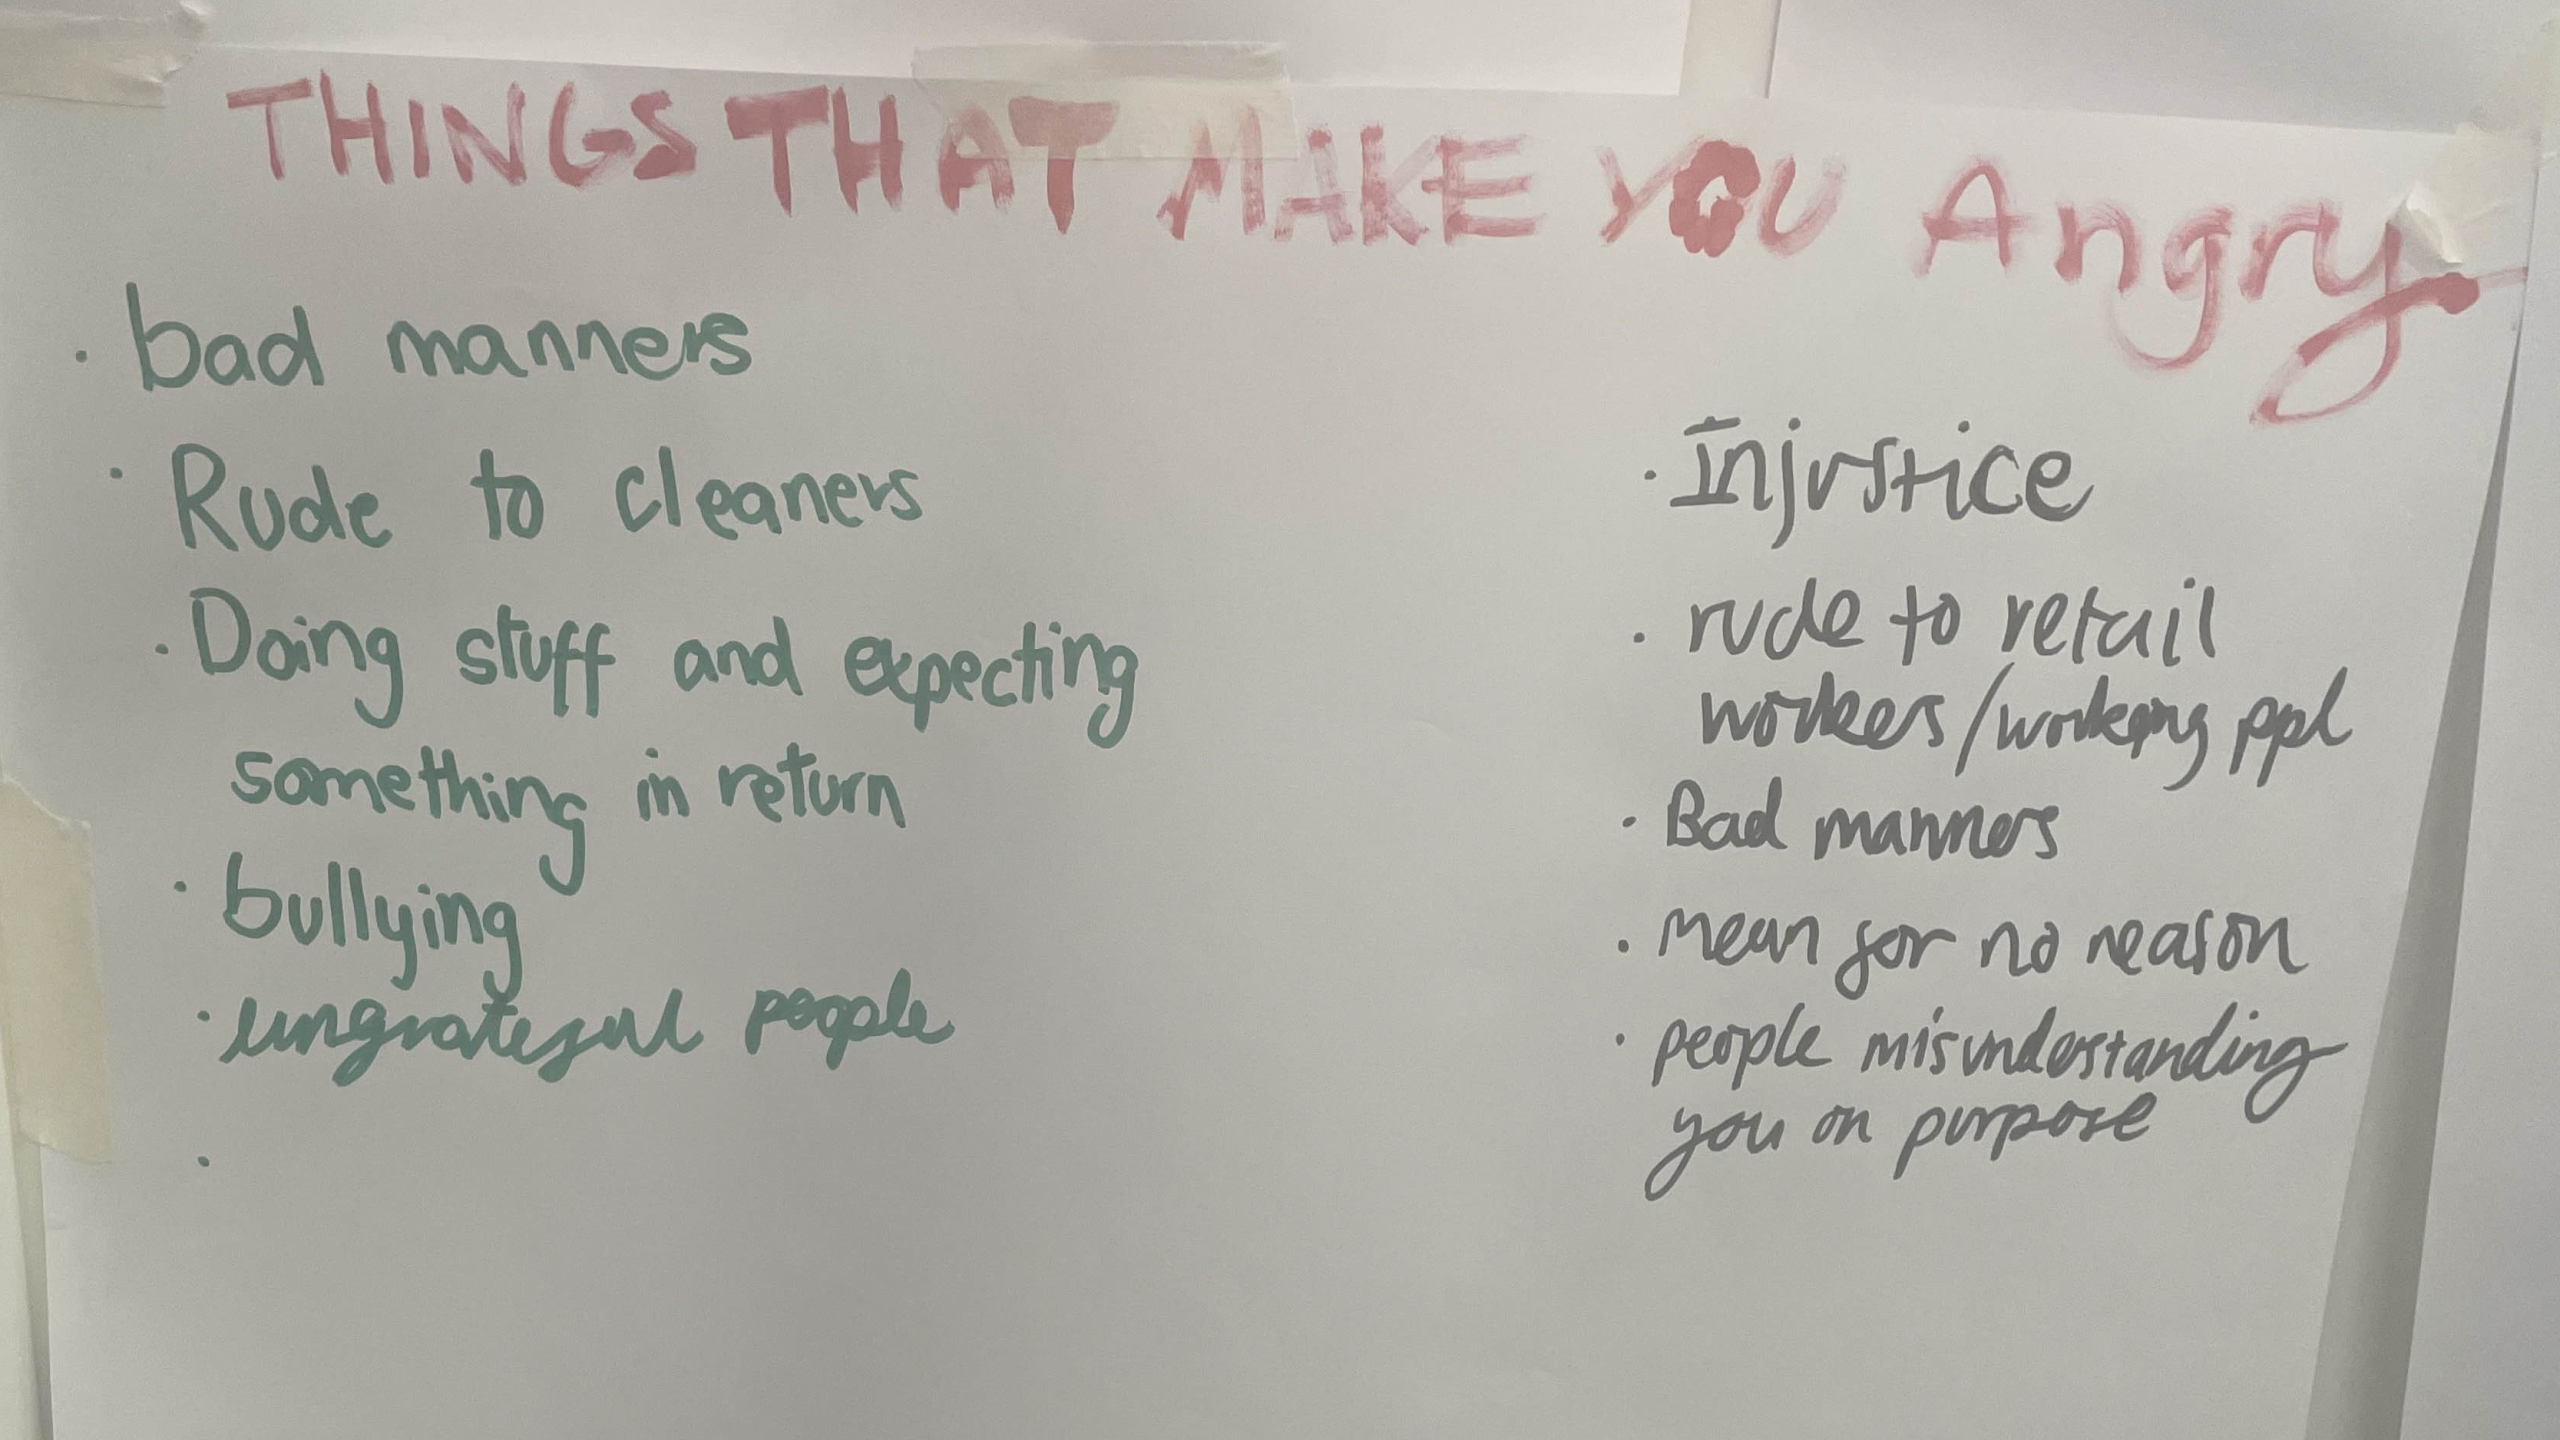 THINGS THAT MAKE YOU Angry
· bad manners
· Rude to cleaners
· Doing stuff and expecting
something in return
· bullying
· ungrateful people
·
· Injustice
· rude to retail
workers/working ppl
· Bad manners
· mean for no reason
· people misunderstanding
you on purpose